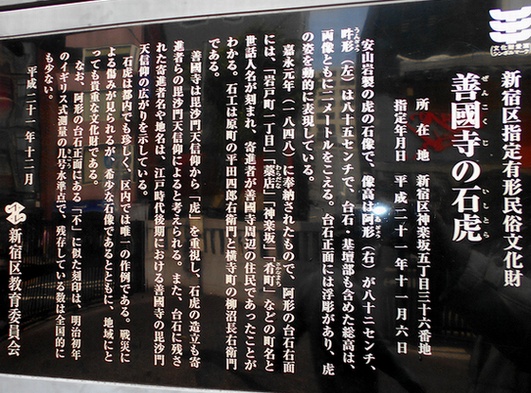 新宿区指定有形民俗文化財
ぜんこくじ いしとら
善國寺の石虎
所在地 新宿区神楽坂五丁目三十六番地
指定年月日 平成二十一年十一月六日
安山岩製の虎の石像で、像高は阿形（右）が八十二センチ、
吽形（左）は八十五センチで、台石・基壇部も含めた総高は、
両像ともに二メートルをこえる。台石正面には浮彫があり、虎
の姿を動的に表現している。
嘉永元年（一八四八）に奉納されたもので、阿形の台石右面
には、「岩戸町一丁目」「藁店」「神楽坂」「肴町」などの町名と
世話人名が刻まれ、寄進者が善國寺周辺の住民であったことが
わかる。石工は原町の平田四郎右衛門と横寺町の柳沼長右衛門
である。
善國寺は毘沙門天信仰から「虎」を重視し、石虎の造立も寄
進者らの毘沙門天信仰によると考えられる。また、台石に残さ
れた寄進者名や地名は、江戸時代後期における善國寺の毘沙門
天信仰の広がりを示している。
石虎は都内でも珍しく、区内では唯一の作例である。戦災に
よる傷みが見られるが、希少な石像であるとともに、地域にと
っても貴重な文化財である。
なお、阿形の台石正面にある「不」に似た刻印は、明治初年
のイギリス式測量の几号水準点で、残存している数は全国的に
も少ない。
平成二十一年十二月
新宿区教育委員会